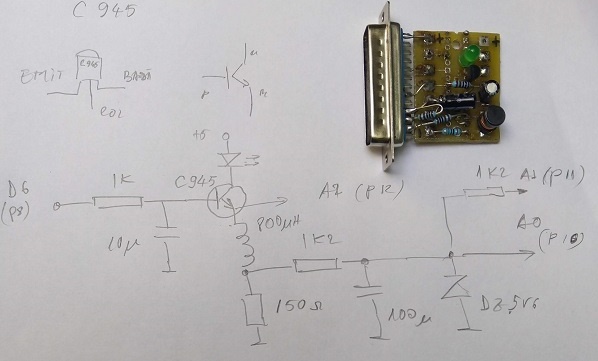 C 945
EMIT
C945
BAZĂ
COL
+5
D6
(P8)
1K
C945
A2 (P12)
1K2
A1 (P11)
800µH
10µ
1K2
A0
(P10)
150Ω
100µ
DZ 5V6